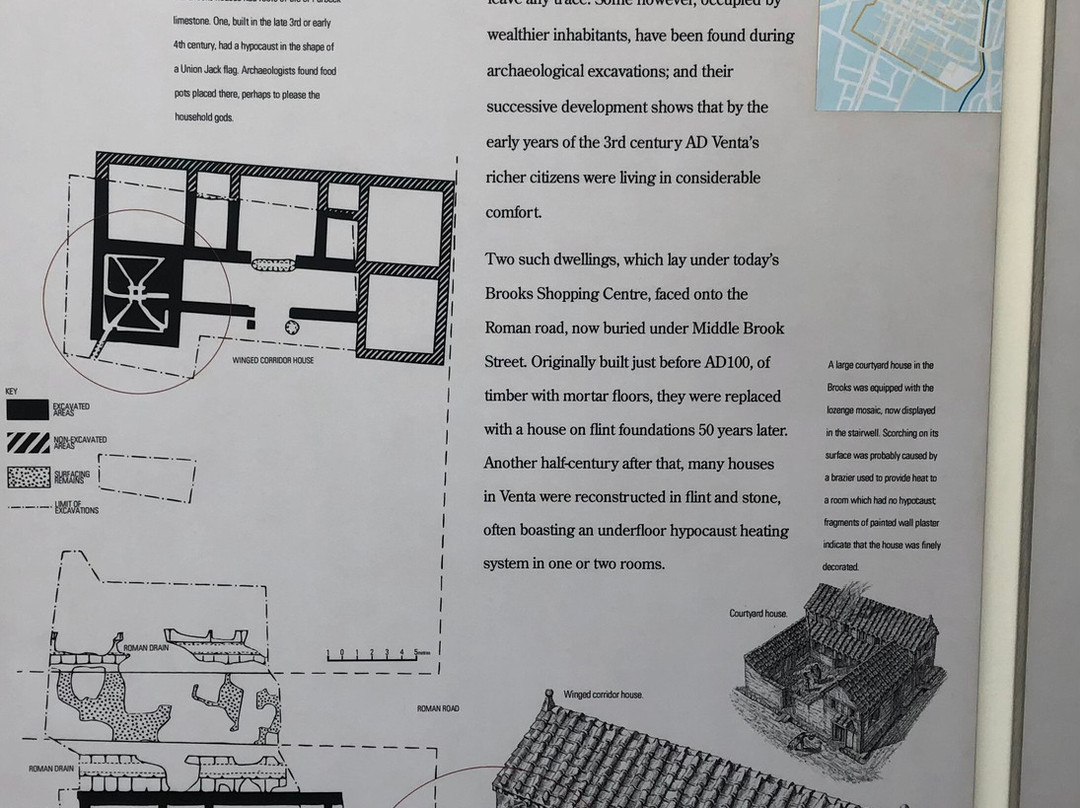 limestone. One, built in the late 3rd or early
4th century, had a hypocaust in the shape of
a Union Jack flag. Archaeologists found food
pots placed there, perhaps to please the
household gods.
WINGED CORRIDOR HOUSE
KEY
EXCAVATED
AREAS
NON-EXCAVATED
AREAS
SURFACING
REMAINS
LIMIT OF
EXCAVATIONS
ROMAN DRAIN
1 0 1 2 3 4 5metres
ROMAN ROAD
ROMAN DRAIN
leave any trace. Some however, occupied by
wealthier inhabitants, have been found during
archaeological excavations; and their
successive development shows that by the
early years of the 3rd century AD Venta's
richer citizens were living in considerable
comfort.
Two such dwellings, which lay under today's
Brooks Shopping Centre, faced onto the
Roman road, now buried under Middle Brook
Street. Originally built just before AD100, of
timber with mortar floors, they were replaced
with a house on flint foundations 50 years later.
Another half-century after that, many houses
in Venta were reconstructed in flint and stone,
often boasting an underfloor hypocaust heating
system in one or two rooms.
A large courtyard house in the
Brooks was equipped with the
lozenge mosaic, now displayed
in the stairwell. Scorching on its
surface was probably caused by
a brazier used to provide heat to
a room which had no hypocaust;
fragments of painted wall plaster
indicate that the house was finely
decorated.
Courtyard house.
Winged corridor house.